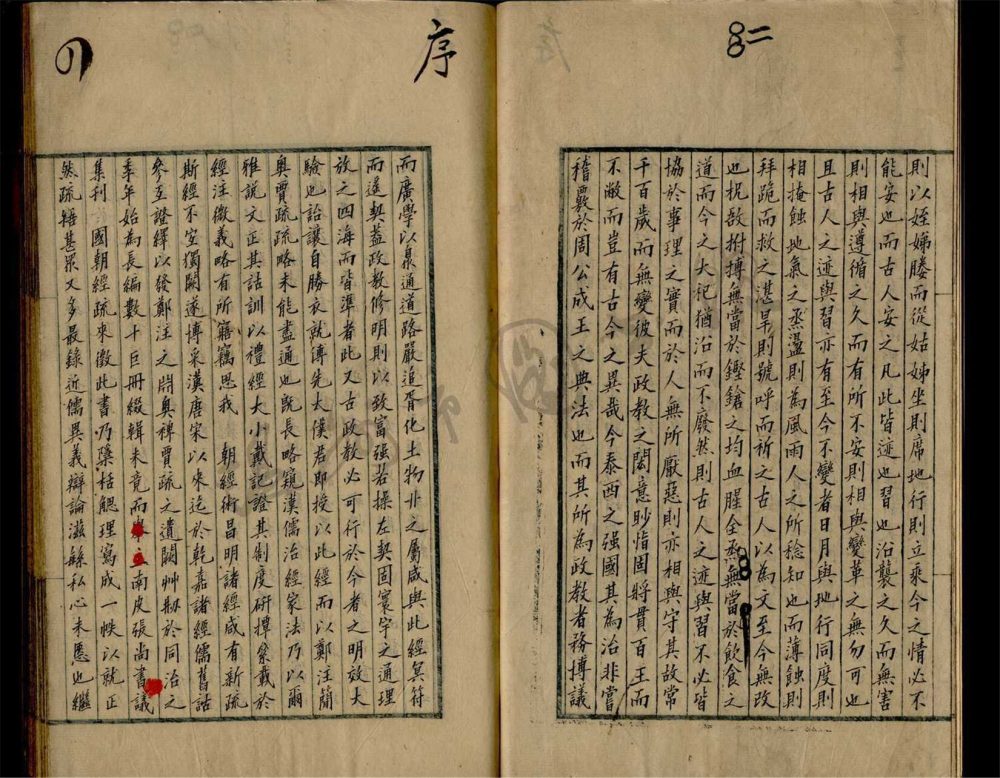 二
則以姪娣媵而從姑姊坐則席地行則立乘今之情必不
能安也而古人安之凡此皆迹也習也沿襲之久而無害
則相與遵循之久而有所不安則相與變革之無勿可也
且古人之迹與習亦有至今不變者日月與地行同度則
相掩蝕地氣之烝盪則為風雨人之所稔知也而薄蝕則
拜跪而救之湛旱則號呼而祈之古人以為文至今無改
也柷敔拊搏無當於鏗鎗之均血腥全烝無當於飲食之
道而今之大祀猶沿而不廢然則古人之迹與習不必皆
協於事理之實而於人無所厭惡則亦相與守其故常
千百歲而無變彼夫政教之閎意眇恉固將貫百王而
不敝而豈有古今之異哉今泰西之强國其為治非嘗
稽覈於周公成王之典法也而其所為政教者務博議
序
而廣學以泉通道路嚴追胥化土物丱之屬咸與此經冥符
而遥契葢政教修明則以致富强若操左契固寰宇之通理
放之四海而皆準者此又古政教必可行於今者之明效大
驗也詒讓自勝衣就傅先太僕君即授以此經而以鄭注簡
奥賈疏疏略未能盡通也既長略窺漢儒治經家法乃以爾
雅說文正其詁訓以禮經大小戴記證其制度研撢絫載於
經注微義略有所寤竊思我　朝經術昌明諸經咸有新疏
斯經不宜獨闕遂博采漢唐宋以來迄於乾嘉諸經儒舊詁
參互證繹以發鄭注之閎奥裨賈疏之遺闕艸剏於同治之
季年始為長編數十巨冊綴輯未竟而舉主南皮張尚書議
集刊　國朝經疏來徵此書乃櫽栝觿理寫成一帙以就正
然疏牾甚眾又多最錄近儒異義辯論滋緐私心未慊也繼